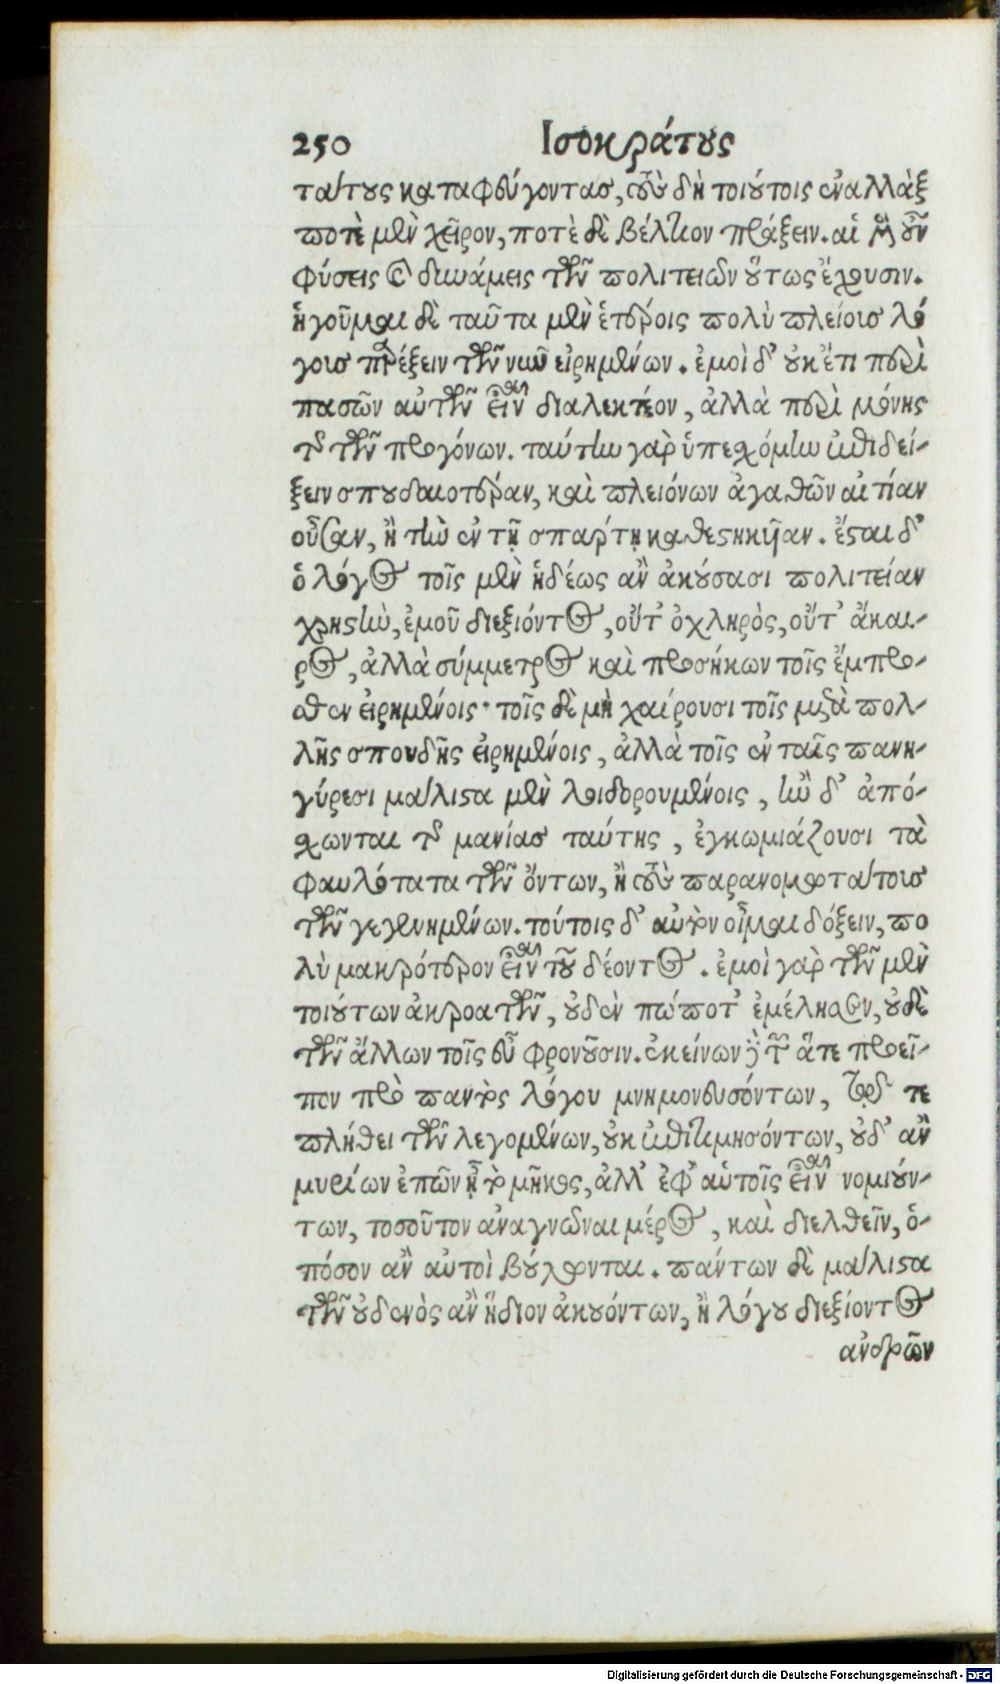 250 Ισοκράτους
τάτους καταφεύγοντας, τοὺς δὲ τοιούτοις ἐναλλὰξ
ποτὲ μὲν χεῖρον, ποτὲ δὲ βέλτιον πράξειν. αἱ μὲν οὖν
φύσεις καὶ δυνάμεις τῶν πολιτειῶν οὕτως ἔχουσιν.
ἡγοῦμαι δὲ ταῦτα μὲν ἑτέροις πολὺ πλείοις λό-
γοις παρέξειν τῶν νῦν εἰρημένων. ἐμοὶ δ' οὐκ ἔτι περὶ
πασῶν αὐτῶν εἶναι διαλεκτέον, ἀλλὰ περὶ μόνης
τῆς τῶν προγόνων. ταύτην γὰρ ὑπεχόμην ἐπιδεί-
ξειν σπουδαιοτέραν, καὶ πλειόνων ἀγαθῶν αἰτίαν
οὖσαν, ἢ τὴν ἐν τῇ σπάρτῃ καθεστηκυῖαν. ἔσται δ'
ὁ λόγος τοῖς μὲν ἡδέως ἂν ἀκούσασι πολιτείαν
χρηστὴν, ἐμοῦ διεξιόντος, οὔτ' ὀχληρὸς, οὔτ' ἄκαι-
ρος, ἀλλὰ σύμμετρος καὶ προσήκων τοῖς ἔμπρο-
σθεν εἰρημένοις· τοῖς δὲ μὴ χαίρουσι τοῖς μετὰ πολ-
λῆς σπουδῆς εἰρημένοις, ἀλλὰ τοῖς ἐν ταῖς πανη-
γύρεσι μάλιστα μὲν λοιδορουμένοις, ἢν δ' ἀπό-
σχωνται τῆς μανίας ταύτης, ἐγκωμιάζουσι τὰ
φαυλότατα τῶν ὄντων, ἢ τοὺς παρανομωτάτοις
τῶν γεγενημένων. τούτοις δ' αὐτὸν οἶμαι δόξειν, πο
λὺ μακρότερον εἶναι τοῦ δέοντος. ἐμοὶ γὰρ τῶν μὲν
τοιούτων ἀκροατῶν, οὐδὲν πώποτ' ἐμέλησεν, οὐδὲ
τῶν ἄλλων τοῖς εὖ φρονοῦσιν. ἐκείνων δὲ τῶν ἅ τε προεῖ-
πον πρὸ παντὸς λόγου μνημονευσόντων, τῷ τε
πλήθει τῶν λεγομένων, οὐκ ἐπιτιμησόντων, οὐδ' ἂν
μυρίων ἐπῶν ᾖ τὸ μῆκος, ἀλλ' ἐφ' αὑτοῖς εἶναι νομιούν-
των, τοσοῦτον ἀναγνῶναι μέρος, καὶ διελθεῖν, ὁ-
πόσον ἂν αὐτοὶ βούλωνται. πάντων δὲ μάλιστα
τῶν οὐδενὸς ἂν ἥδιον ἀκουόντων, ἢ λόγου διεξιόντος
ἀνδρῶν
Digitalisierung gefördert durch die Deutsche Forschungsgemeinschaft - DFG